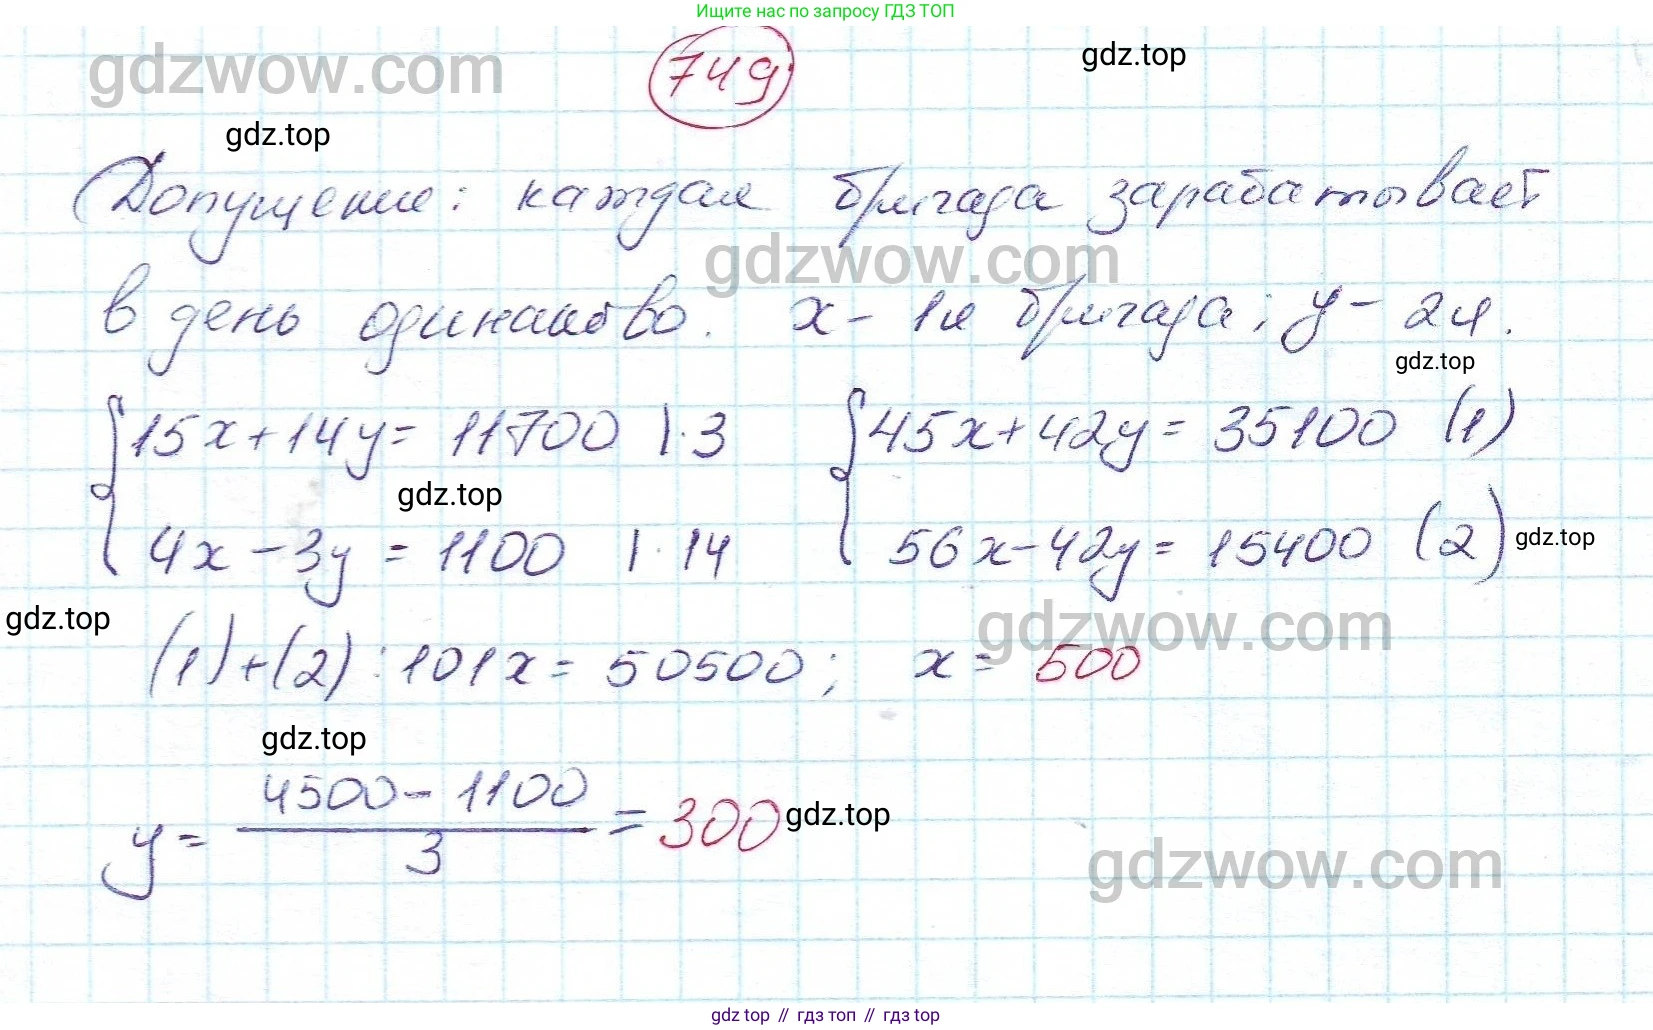 Ищите нас по запросу ГДЗ ТОП
gdzwow.com
749
gdz.top
gdz.top
Допущение: каждая бригада зарабатывает
gdzwow.com
в день одинаково. x - 1я бригада; y - 2я.
gdz.top
15x + 14y = 11700 | · 3
45x + 42y = 35100 (1)
gdz.top
4x - 3y = 1100 | · 14
56x - 42y = 15400 (2)
gdz.top
gdz.top
gdzwow.com
(1) + (2) : 101x = 50500; x = 500
gdz.top
y = 4500 - 1100 / 3 = 300
gdz.top
gdzwow.com
gdz.top // гдз топ // гдз.top